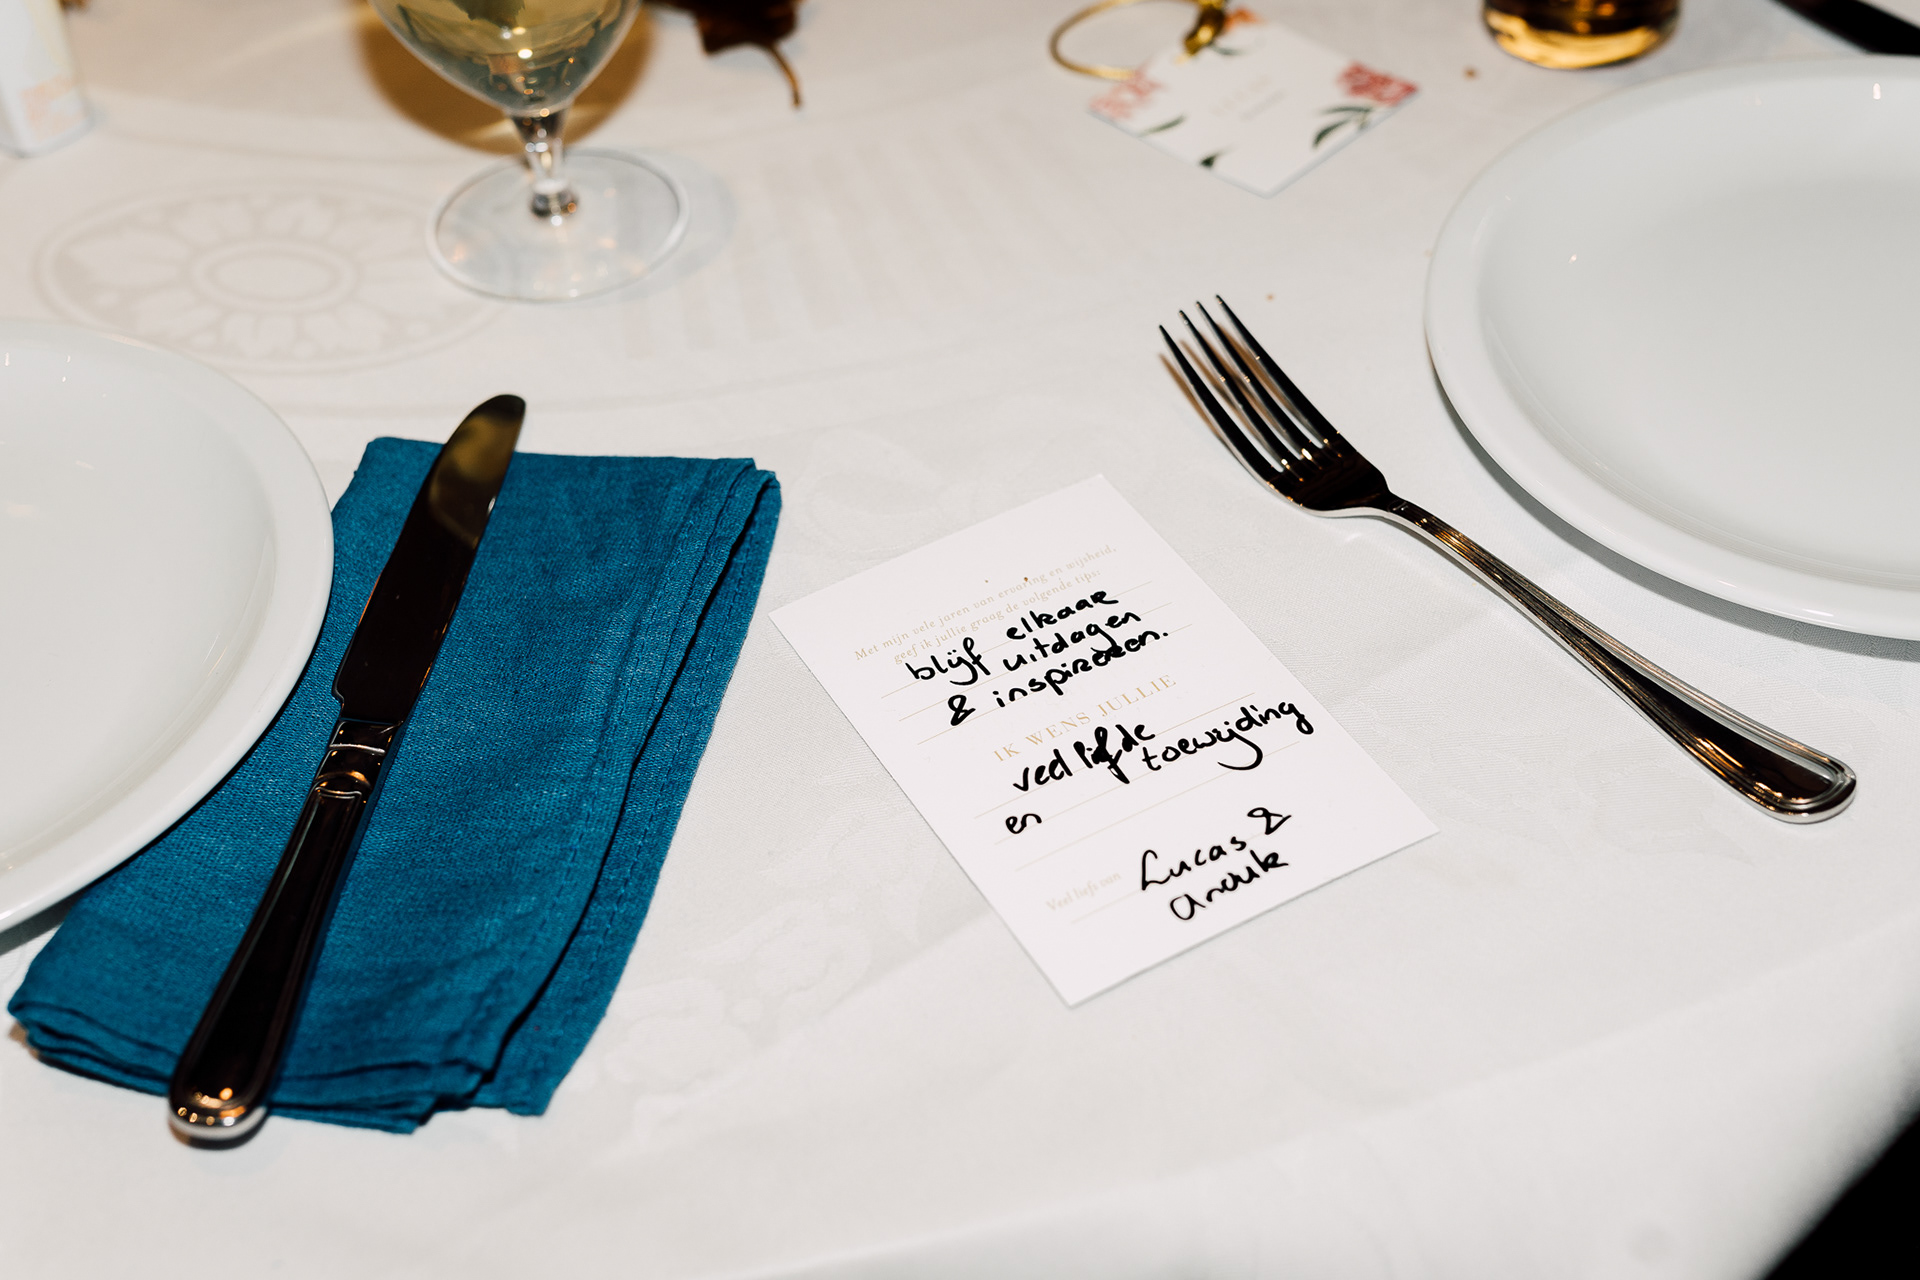 Met mijn vele jaren van ervaring en wijsheid,
geef ik jullie graag de volgende tips:
blijf elkaar
uitdagen
& inspireren.
IK WENS JULLIE
veel liefde
en toewijding
Veel liefs van
Lucas &
Anouk